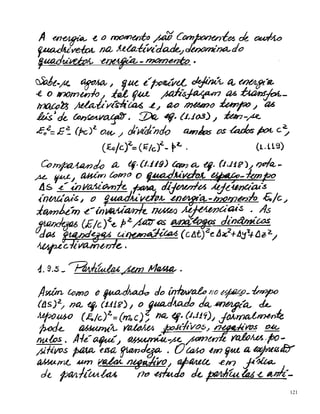 A energia e o momento são Componentes de outro
quadrivetor na relatividade, denominado
quadrivetor energia - momento.
Sabe-se agora, que é possível definir a energia
e o momento, tal que satisfaçam as transfor-
mações relativísticas e, ao mesmo tempo, as
leis de conservação. De eq. (1.103), tem-se
E₀² = E² - (pc)² ou, dividindo ambos os lados por c²,
(E₀/c)² = (E/c)² - p². (1.119)
Comparando a eq. (1.119) com a eq. (1.118), nota-
se que, assim como o quadrivetor espaço-tempo
ΔS é invariante para diferentes referenciais
inerciais, o quadrivetor energia-momento E₀/c,
também é invariante nesses referenciais. As
grandezas (E/c)² e p² são os análogos dinâmicos
das grandezas cinemáticas (cΔt)² e Δx²+Δy²+Δz²,
respectivamente.
1.9.5 - Partículas sem Massa.
Assim como o quadrado do intervalo no espaço-tempo
(ΔS)², na eq. (1.118), o quadrado da energia de
repouso (E₀/c)² = (m₀c)², na eq. (1.119), formalmente
pode assumir valores positivos, negativos ou
nulos. Até aqui, assumiu-se somente valores po-
sitivos para essa grandeza. O caso em que a expressão
assume um valor negativo, aparece em física
de partículas no estudo de partículas e anti-
121